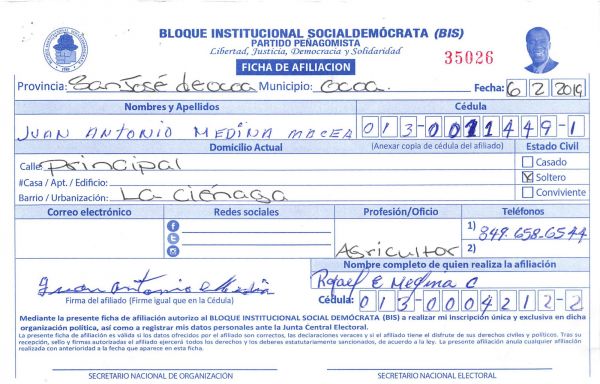 BLOQUE INSTITUCIONAL SOCIALDEMÓCRATA (BIS)
PARTIDO PEÑAGOMISTA
Libertad, Justicia, Democracia y Solidaridad
35026
FICHA DE AFILIACION
Provincia: San José de ocoa Municipio: ocoa. Fecha: 6 2 2019
Nombres y Apellidos Cédula
JUAN ANTONIO MEDINA MACEA 013-0011449-1
Domicilio Actual (Anexar copia de cédula del afiliado) Estado Civil
Calle Principal Casado
#Casa / Apt. / Edificio: X Soltero
Barrio / Urbanización: La Ciénaga Conviviente
Correo electrónico Redes sociales Profesión/Oficio Teléfonos
1) 849-658-6544
Agricultor 2)
Nombre completo de quien realiza la afiliación
Juan Antonio Medina Rafael E Medina C
Firma del afiliado (Firme igual que en la Cédula) Cédula: 013-0004212-2
Mediante la presente ficha de afiliación autorizo al BLOQUE INSTITUCIONAL SOCIAL DEMÓCRATA (BIS) a realizar mi inscripción única y exclusiva en dicha
organización política, así como a registrar mis datos personales ante la Junta Central Electoral.
La presente ficha de afiliación es válida si los datos ofrecidos por el afiliado son correctos, las declaraciones veraces y si el afiliado tiene el disfrute de sus derechos civiles y políticos. Tras su
recepción, sello y firmas autorizadas el afiliado ejercerá todos los derechos y los deberes estatutariamente sancionados, de acuerdo a la ley. La presente afiliación anula cualquier afiliación
realizada con anterioridad a la fecha que aparece en esta ficha.
SECRETARIO NACIONAL DE ORGANIZACIÓN SECRETARIO NACIONAL ELECTORAL